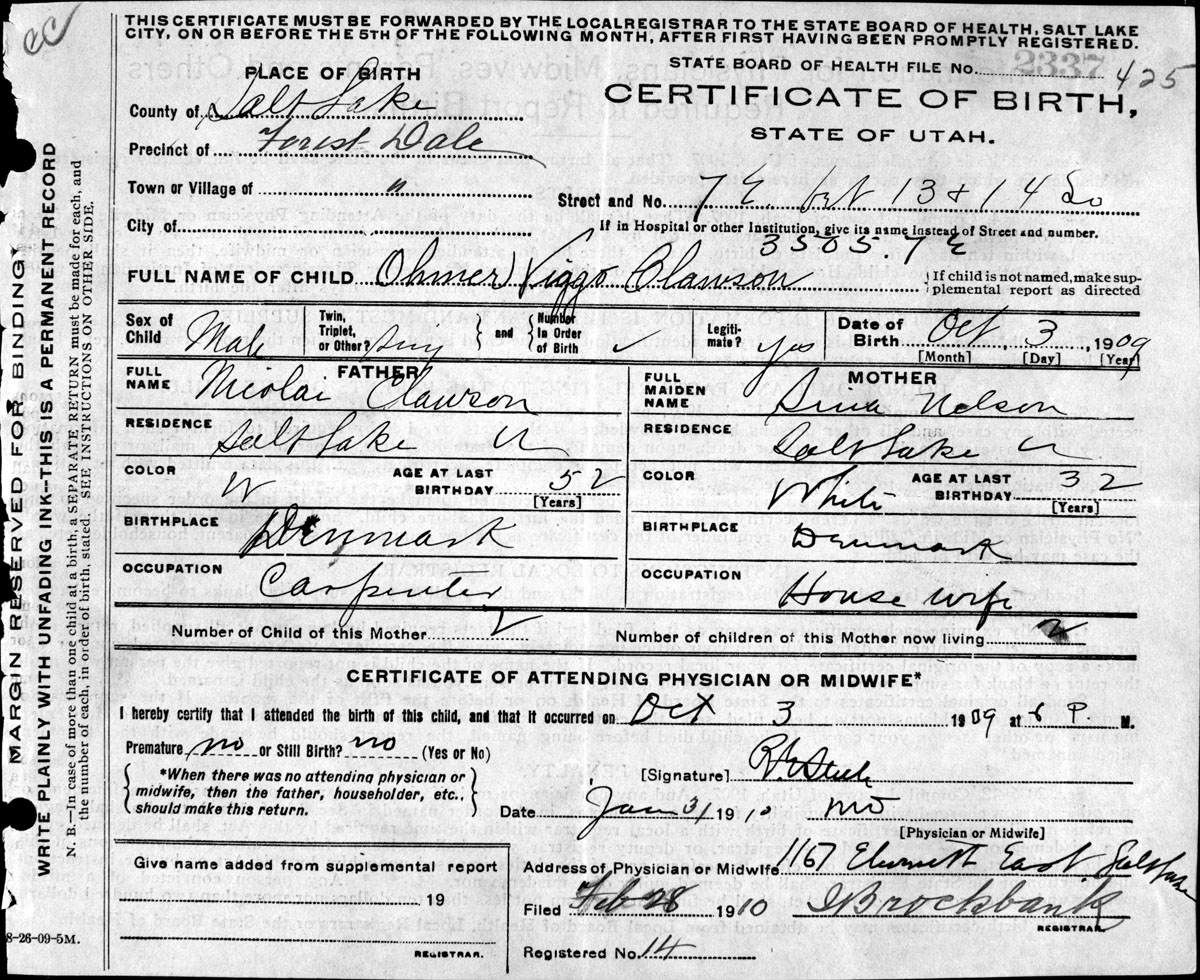 THIS CERTIFICATE MUST BE FORWARDED BY THE LOCAL REGISTRAR TO THE STATE BOARD OF HEALTH, SALT LAKE
CITY, ON OR BEFORE THE 5TH OF THE FOLLOWING MONTH, AFTER FIRST HAVING BEEN PROMPTLY REGISTERED.
STATE BOARD OF HEALTH FILE No. 2337 425
PLACE OF BIRTH
CERTIFICATE OF BIRTH,
STATE OF UTAH.
County of Salt Lake
Precinct of Forest Dale
Town or Village of "
Street and No. 7 E. bet 13 & 14 So
City of
If in Hospital or other Institution, give its name instead of Street and number.
3505 7 E
FULL NAME OF CHILD Ohmer Viggo Clawson
{ If child is not named, make supplemental report as directed
Sex of Child Male
Twin, Triplet, or Other? } and { Number in Order of Birth
Legitimate? yes
Date of Birth Oct 3, 1909
[Month] [Day] [Year]
FATHER
FULL NAME Nicolai Clawson
RESIDENCE Salt Lake U
COLOR W
AGE AT LAST BIRTHDAY 52
[Years]
BIRTHPLACE Denmark
OCCUPATION Carpenter
MOTHER
FULL MAIDEN NAME Nelson
RESIDENCE Salt Lake U
COLOR White
AGE AT LAST BIRTHDAY 32
[Years]
BIRTHPLACE Denmark
OCCUPATION House wife
Number of Child of this Mother 2
Number of children of this Mother now living 2
CERTIFICATE OF ATTENDING PHYSICIAN OR MIDWIFE*
I hereby certify that I attended the birth of this child, and that it occurred on Oct 3 1909 at 8 P. M.
Premature no or Still Birth? no (Yes or No)
{ *When there was no attending physician or
midwife, then the father, householder, etc.,
should make this return. }
[Signature]
Date Jan 31 1910 MD
[Physician or Midwife]
Give name added from supplemental report
19
REGISTRAR.
Address of Physician or Midwife 1167 Eleventh East Salt Lake
Filed Feb 28 1910 Brockbank
REGISTRAR
Registered No. 14
8-26-09-5M.
MARGIN RESERVED FOR BINDING
WRITE PLAINLY WITH UNFADING INK—THIS IS A PERMANENT RECORD
N. B.—In case of more than one child at a birth, a SEPARATE RETURN must be made for each, and
the number of each, in order of birth, stated. SEE INSTRUCTIONS ON OTHER SIDE.